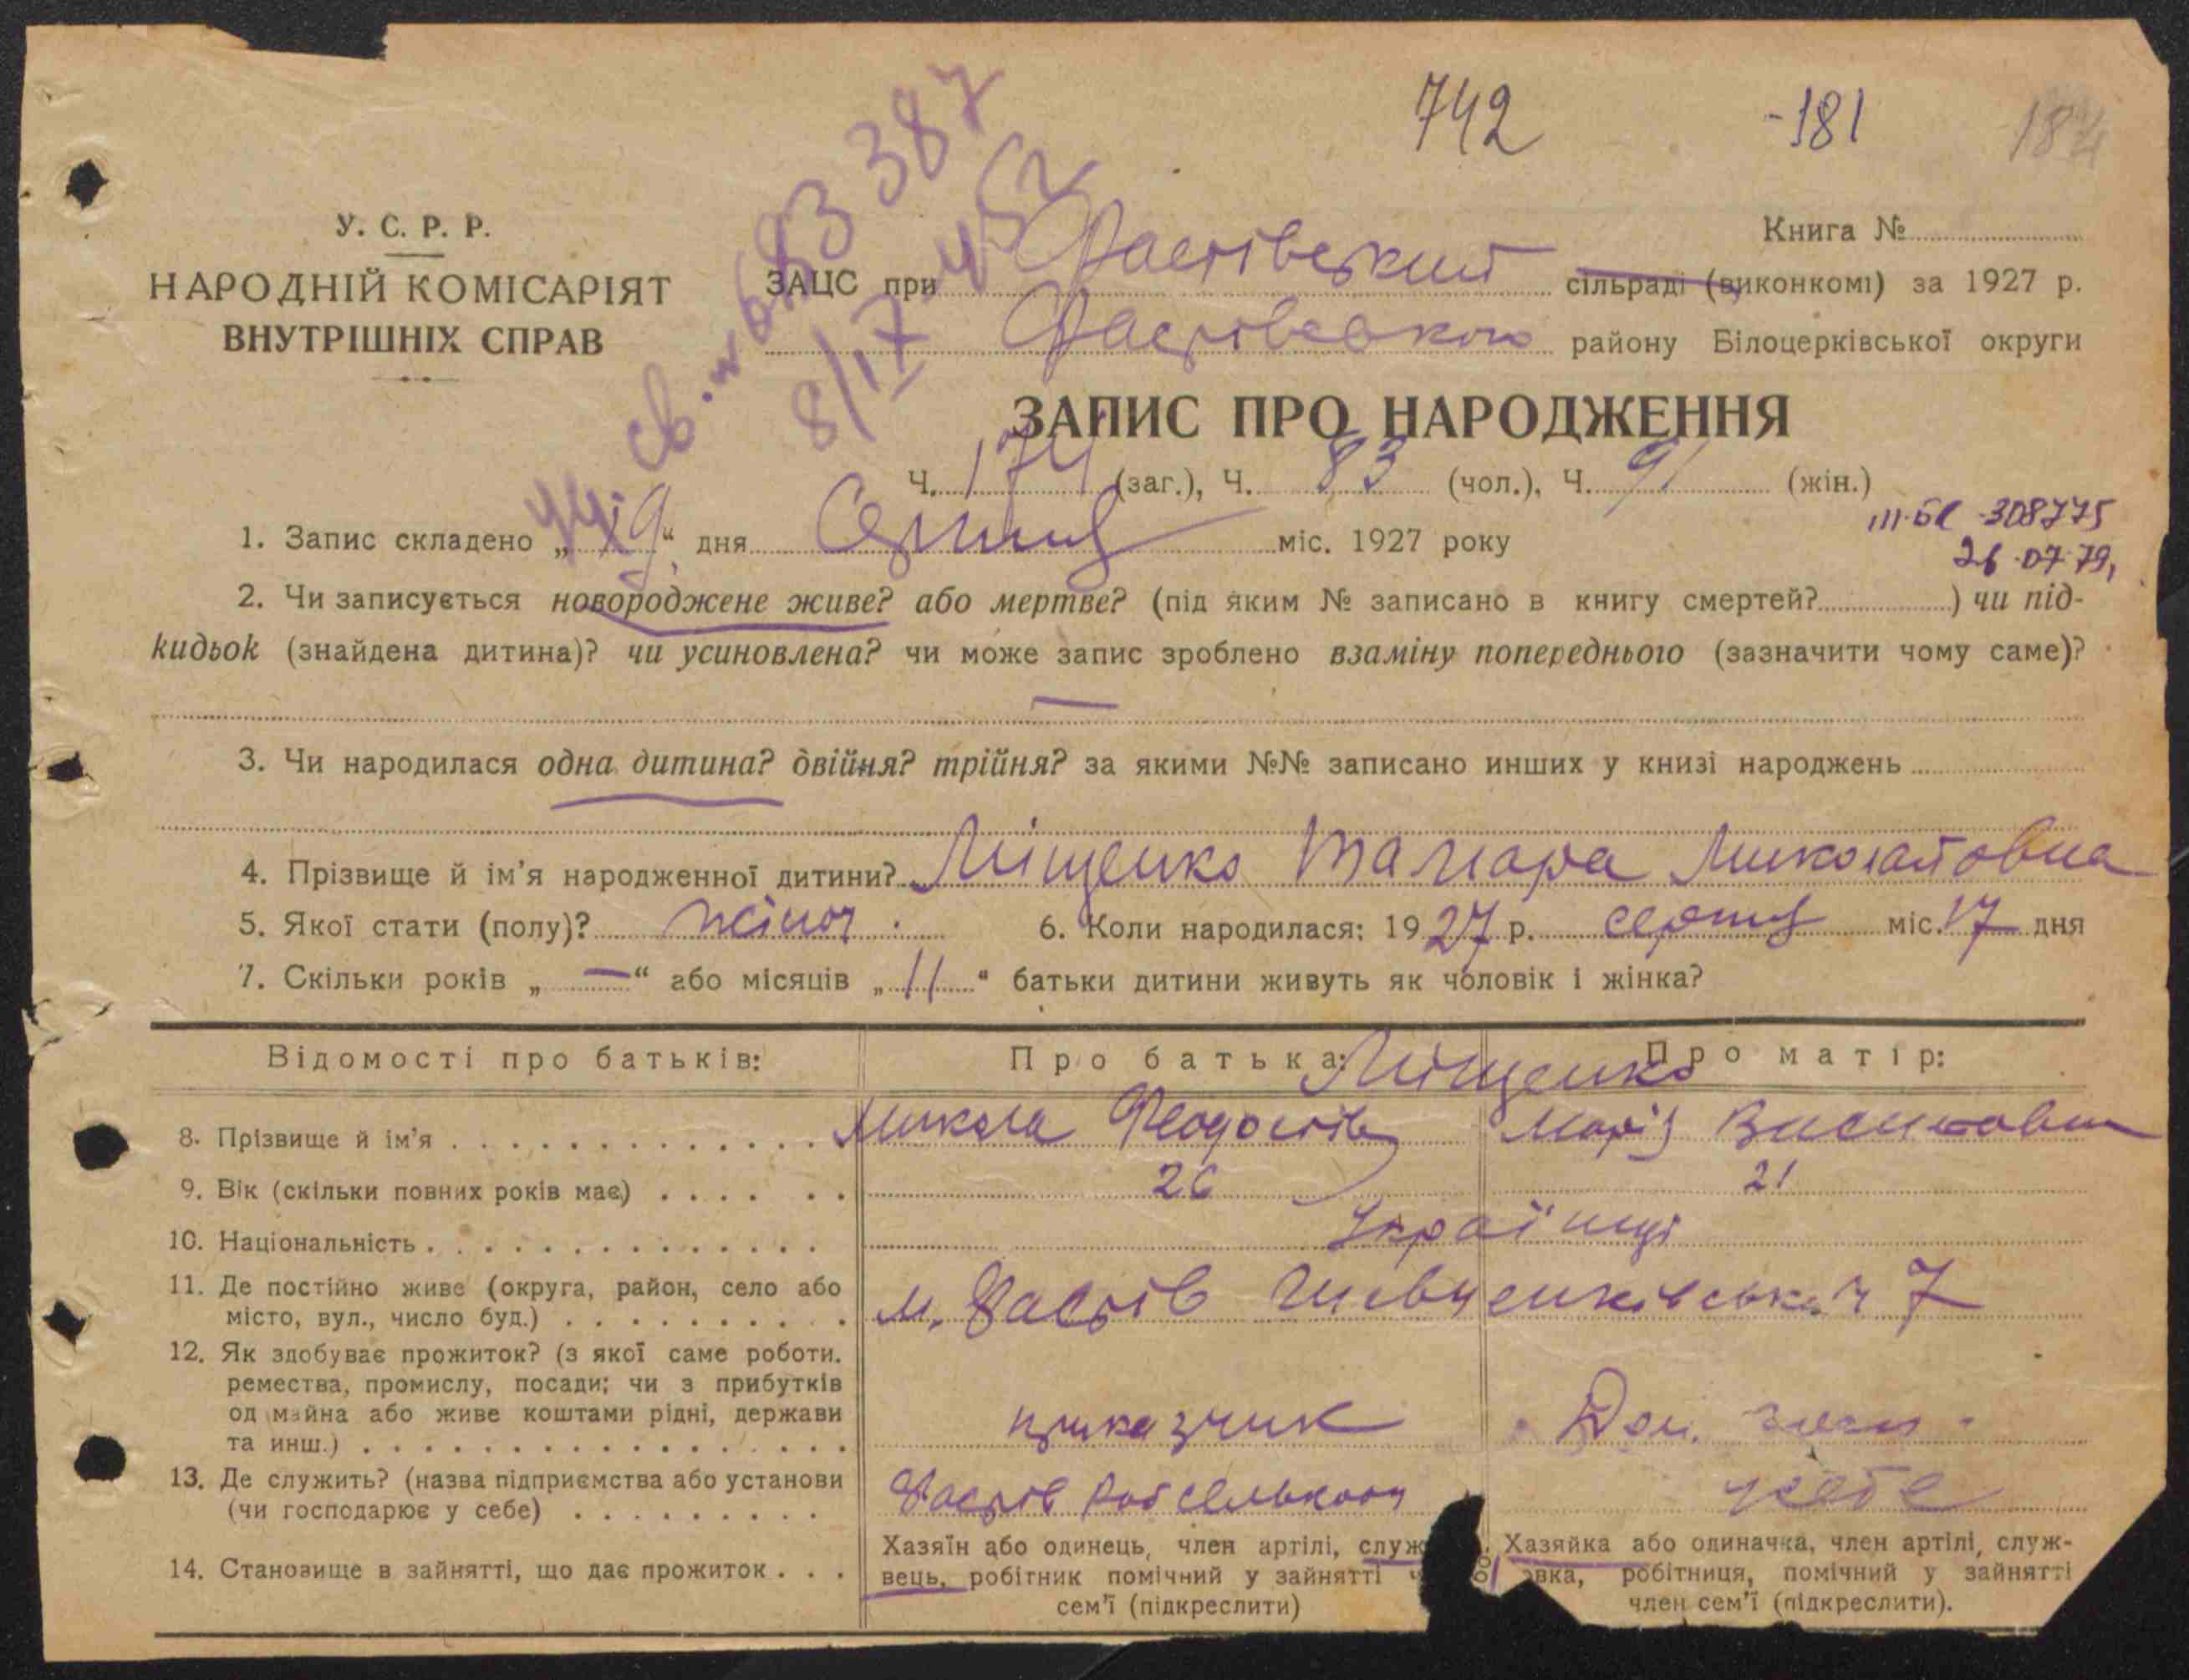 742 -181 184
У. С. Р. Р.
НАРОДНІЙ КОМІСАРІЯТ
ВНУТРІШНІХ СПРАВ
Книга №
ЗАЦС при Фастівський сільраді (виконкомі) за 1927 р.
Фастівського району Білоцерківської округи
ЗАПИС ПРО НАРОДЖЕННЯ
Ч. 174 (заг.), Ч. 83 (чол.), Ч. 91 (жін.)
308775
26.07.79,
1. Запис складено „19“ дня Серпня міс. 1927 року
2. Чи записується новороджене живе? або мертве? (під яким № записано в книгу смертей? ) чи під-
кидьок (знайдена дитина)? чи усиновлена? чи може запис зроблено взаміну попереднього (зазначити чому саме)?
—
3. Чи народилася одна дитина? двійня? трійня? за якими №№ записано инших у книзі народжень
4. Прізвище й ім'я народженної дитини? Міщенко Тамара Миколаївна
5. Якої стати (полу)? жіноч. 6. Коли народилася: 1927 р. серпня міс. 17 дня
7. Скільки років „ — “ або місяців „ 11 “ батьки дитини живуть як чоловік і жінка?
Відомості про батьків: Про батька: Про матір:
Міщенко
8. Прізвище й ім'я Микола Феодосієв Марія
9. Вік (скільки повних років має) 26 21
10. Національність Українці
11. Де постійно живе (округа, район, село або
місто, вул., число буд.) м. Фастів Шевченківська ч 7
12. Як здобуває прожиток? (з якої саме роботи.
ремества, промислу, посади; чи з прибутків
од майна або живе коштами рідні, держави
та инш.) приказчик Дом.
13. Де служить? (назва підприємства або установи
(чи господарює у себе) Фастів у себе
14. Становище в зайнятті, що дає прожиток
Хазяїн або одинець, член артілі, служ
вець, робітник помічний у зайнятті
сем'ї (підкреслити)
Хазяйка або одиначка, член артілі, служ-
овка, робітниця, помічний у зайнятті
член сем'ї (підкреслити).